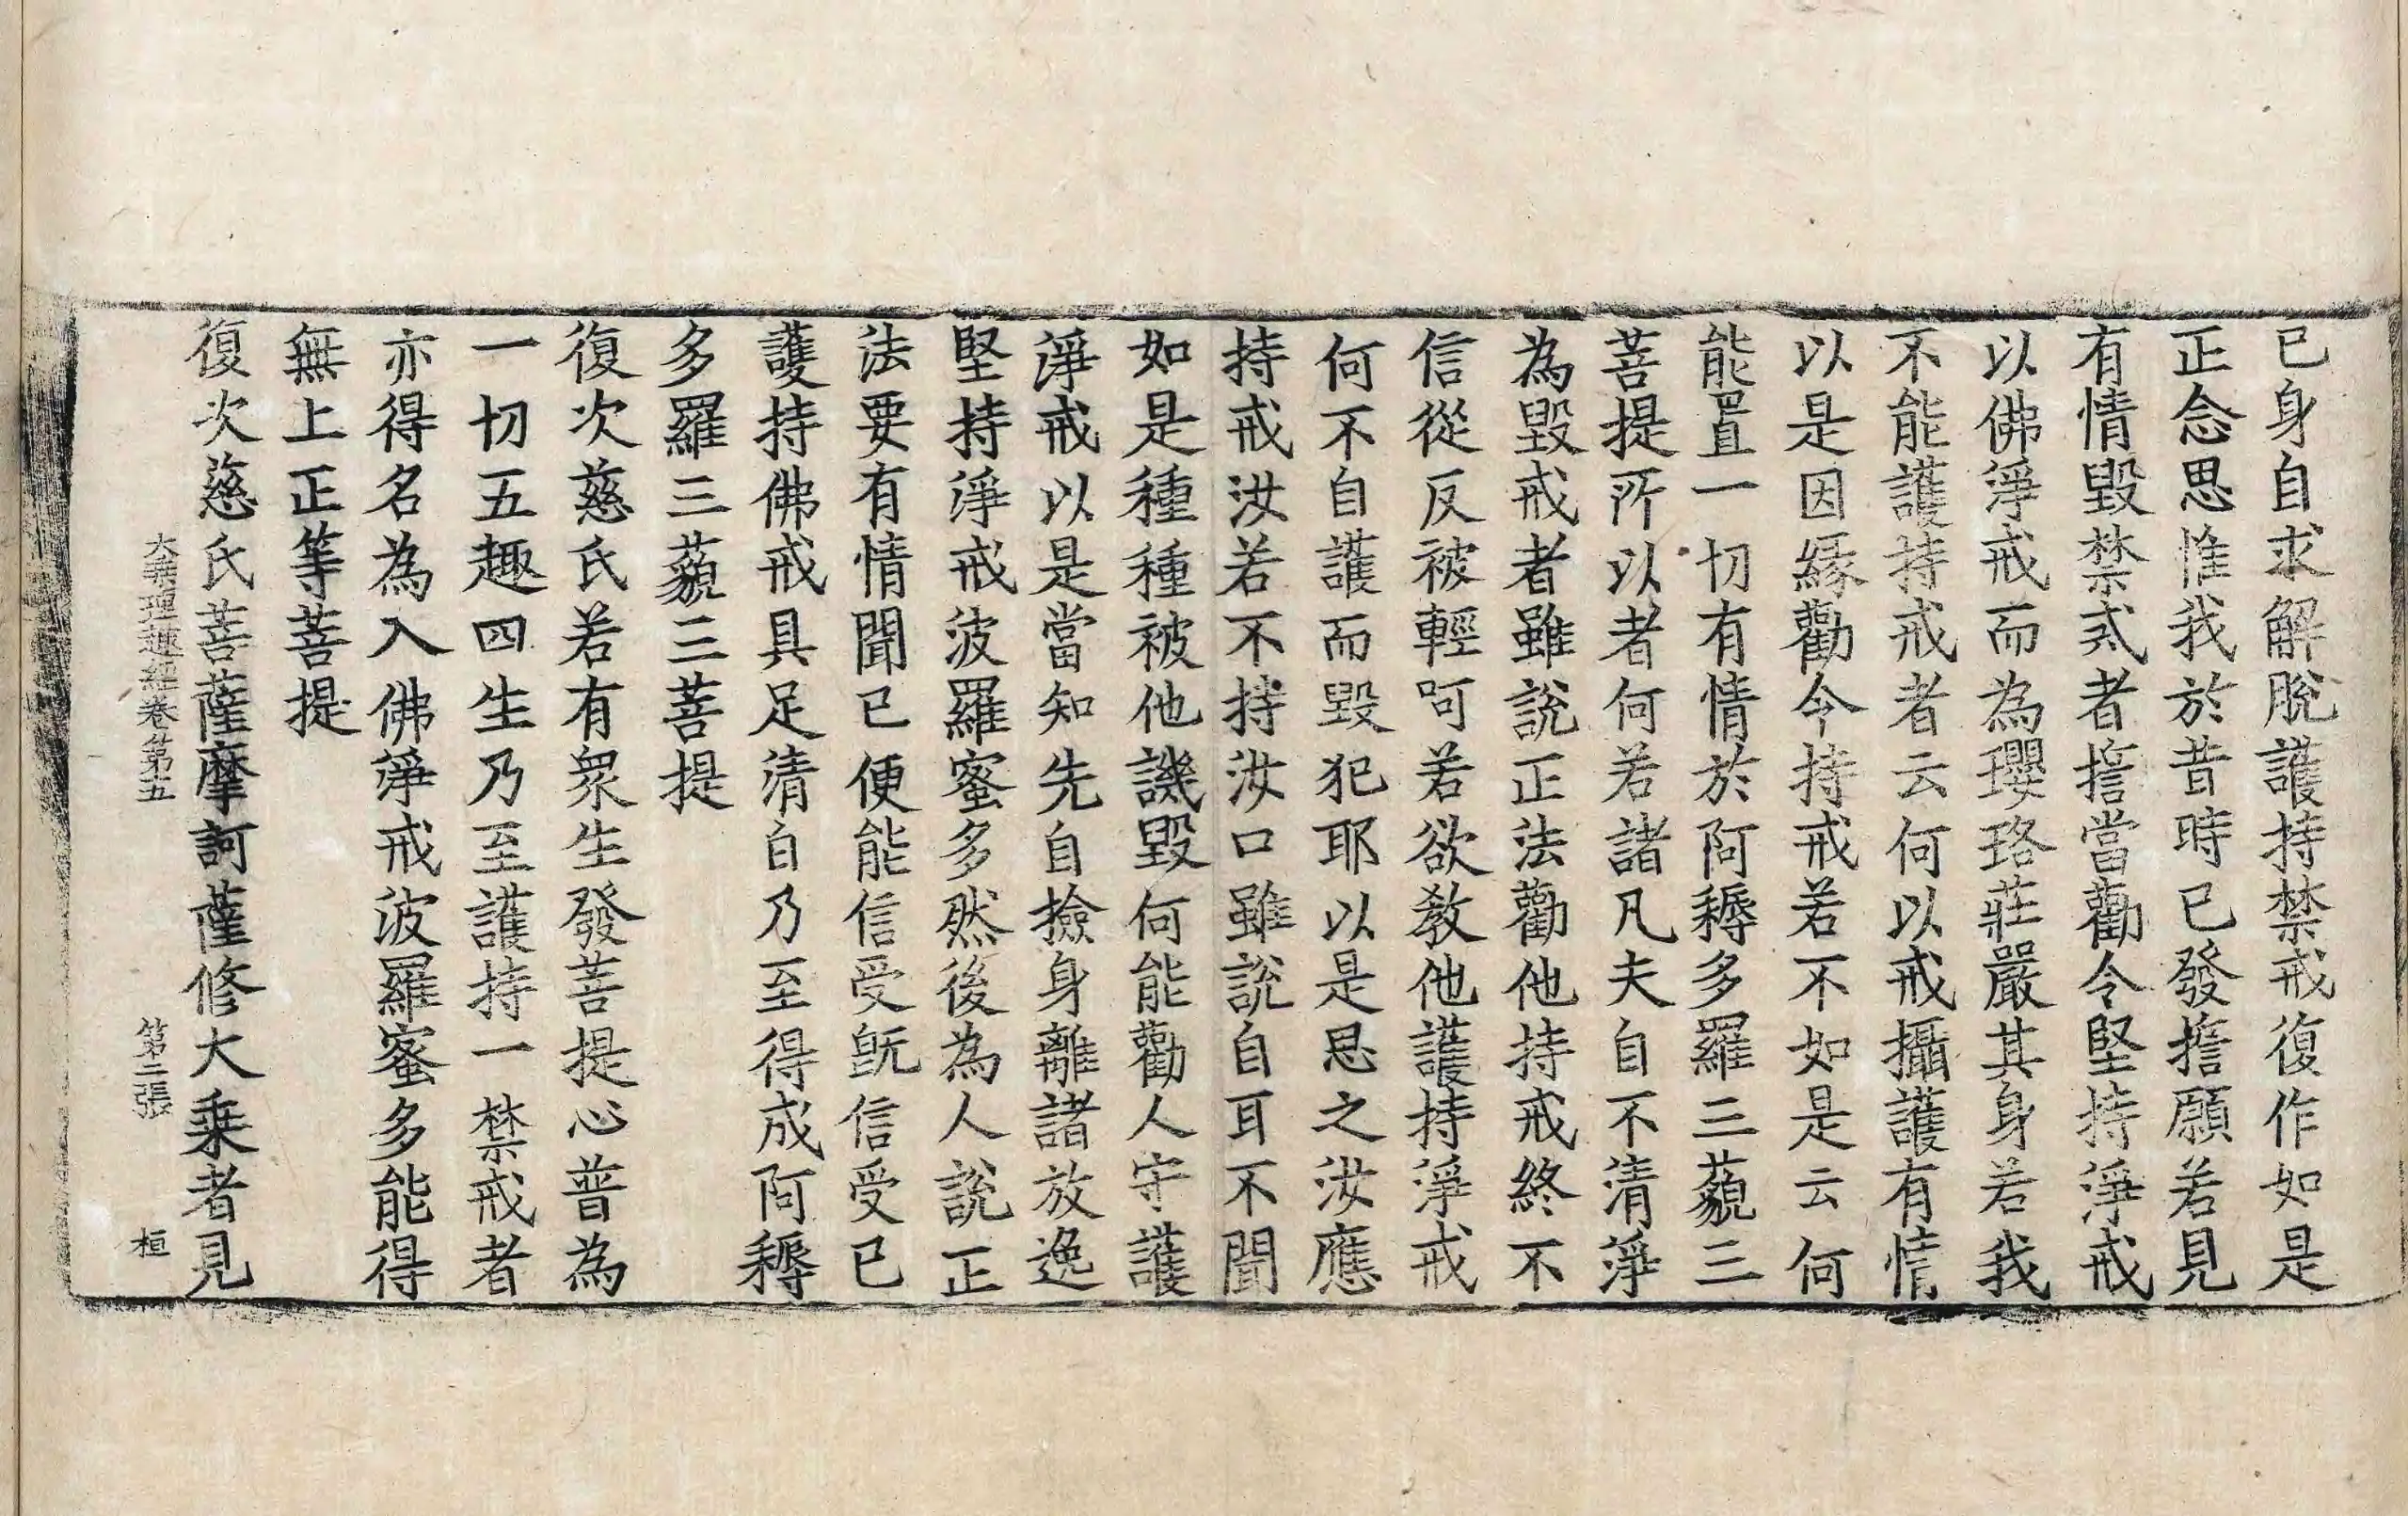 已身自求解脫護持禁戒復作如是
正念思惟我於昔時已發擔願若見
有情毀禁戒者擔當勸令堅持淨戒
以佛淨戒而為瓔珞莊嚴其身若我
不能護持戒者云何以戒攝護有情
以是因緣勸今持戒若不如是云何
能置一切有情於阿耨多羅三藐三
菩提所以者何若諸凡夫自不清淨
為毀戒者雖說正法勸他持戒終不
信從反被輕呵若欲教他護持淨戒
何不自護而毀犯耶以是思之汝應
持戒汝若不持汝口雖說自耳不聞
如是種種被他譏毀何能勸人守護
淨戒以是當知先自撿身離諸放逸
堅持淨戒波羅蜜多然後為人說正
法要有情聞已便能信受既信受已
護持佛戒具足清白乃至得成阿耨
多羅三藐三菩提
復次慈氏若有眾生發菩提心普為
一切五趣四生乃至護持一禁戒者
亦得名為入佛淨戒波羅蜜多能得
無上正等菩提
復次慈氏菩薩摩訶薩修大乘者見
大乘理趣經卷第五 第二張 桓